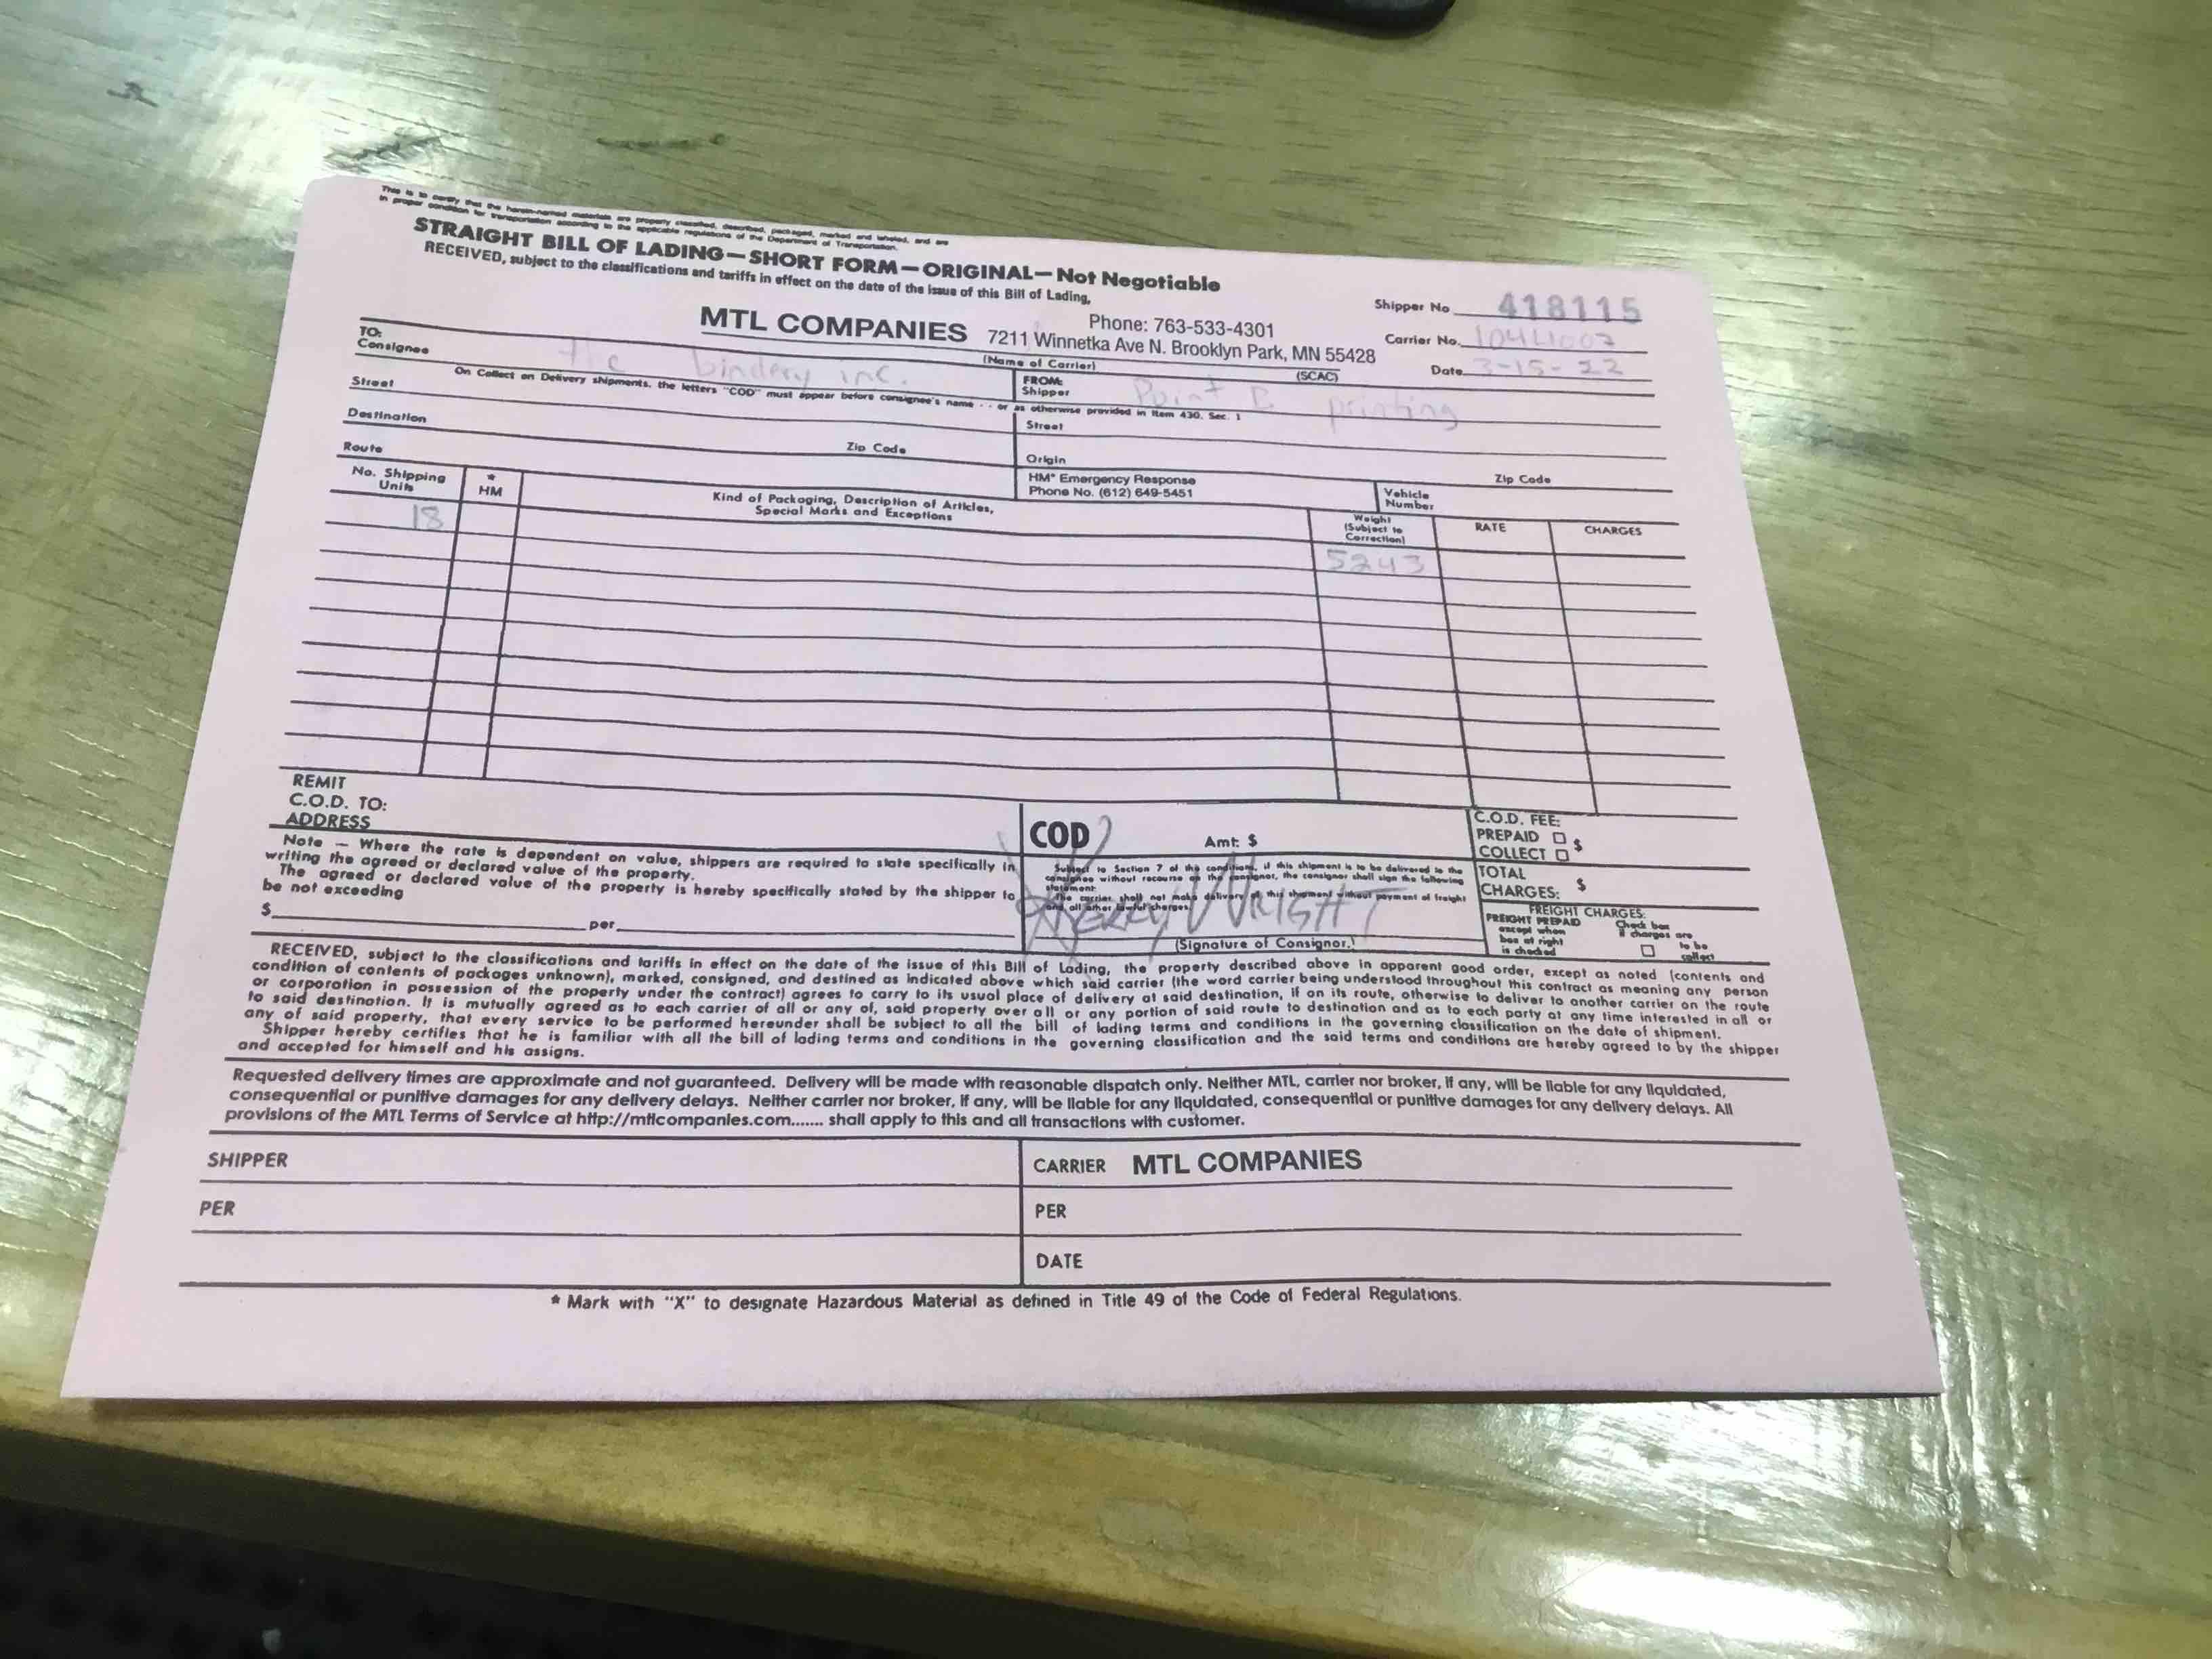 This is to certify that the herein-named materials are properly classified, described, packaged, marked and labeled, and are
in proper condition for transportation according to the applicable regulations of the Department of Transportation.
STRAIGHT BILL OF LADING—SHORT FORM—ORIGINAL—Not Negotiable
RECEIVED, subject to the classifications and tariffs in effect on the date of the issue of this Bill of Lading,
Shipper No 418115
MTL COMPANIES
Phone: 763-533-4301
7211 Winnetka Ave N. Brooklyn Park, MN 55428
Carrier No.
(Name of Carrier)
(SCAC)
Date 3-15-22
TO:
Consignee the bindery inc.
FROM:
Shipper Point B printing
On Collect on Delivery shipments, the letters "COD" must appear before consignee's name - - or as otherwise provided in Item 430, Sec. 1
Street
Street
Destination
Zip Code
Origin
Zip Code
Route
HM* Emergency Response
Phone No. (612) 649-5451
Vehicle
Number
No. Shipping
Units
*
HM
Kind of Packaging, Description of Articles,
Special Marks and Exceptions
Weight
(Subject to
Correction)
RATE
CHARGES
18
5243
REMIT
C.O.D. TO:
ADDRESS
COD
Amt: $
C.O.D. FEE:
PREPAID $
COLLECT
Note — Where the rate is dependent on value, shippers are required to state specifically in
writing the agreed or declared value of the property.
The agreed or declared value of the property is hereby specifically stated by the shipper to
be not exceeding
$ per
Subject to Section 7 of the conditions, if this shipment is to be delivered to the
consignee without recourse on the consignor, the consignor shall sign the following
statement:
The carrier shall not make delivery of this shipment without payment of freight
and all other lawful charges.
WRIGHT
(Signature of Consignor.)
TOTAL
CHARGES: $
FREIGHT CHARGES:
FREIGHT PREPAID
except when
box at right
is checked
Check box
if charges are
to be
collect
RECEIVED, subject to the classifications and tariffs in effect on the date of the issue of this Bill of Lading, the property described above in apparent good order, except as noted (contents and
condition of contents of packages unknown), marked, consigned, and destined as indicated above which said carrier (the word carrier being understood throughout this contract as meaning any person
or corporation in possession of the property under the contract) agrees to carry to its usual place of delivery at said destination, if on its route, otherwise to deliver to another carrier on the route
to said destination. It is mutually agreed as to each carrier of all or any of, said property over all or any portion of said route to destination and as to each party at any time interested in all or
any of said property, that every service to be performed hereunder shall be subject to all the bill of lading terms and conditions in the governing classification on the date of shipment.
Shipper hereby certifies that he is familiar with all the bill of lading terms and conditions in the governing classification and the said terms and conditions are hereby agreed to by the shipper
and accepted for himself and his assigns.
Requested delivery times are approximate and not guaranteed. Delivery will be made with reasonable dispatch only. Neither MTL, carrier nor broker, if any, will be liable for any liquidated,
consequential or punitive damages for any delivery delays. Neither carrier nor broker, if any, will be liable for any liquidated, consequential or punitive damages for any delivery delays. All
provisions of the MTL Terms of Service at http://mtlcompanies.com....... shall apply to this and all transactions with customer.
SHIPPER
CARRIER MTL COMPANIES
PER
PER
DATE
* Mark with "X" to designate Hazardous Material as defined in Title 49 of the Code of Federal Regulations.